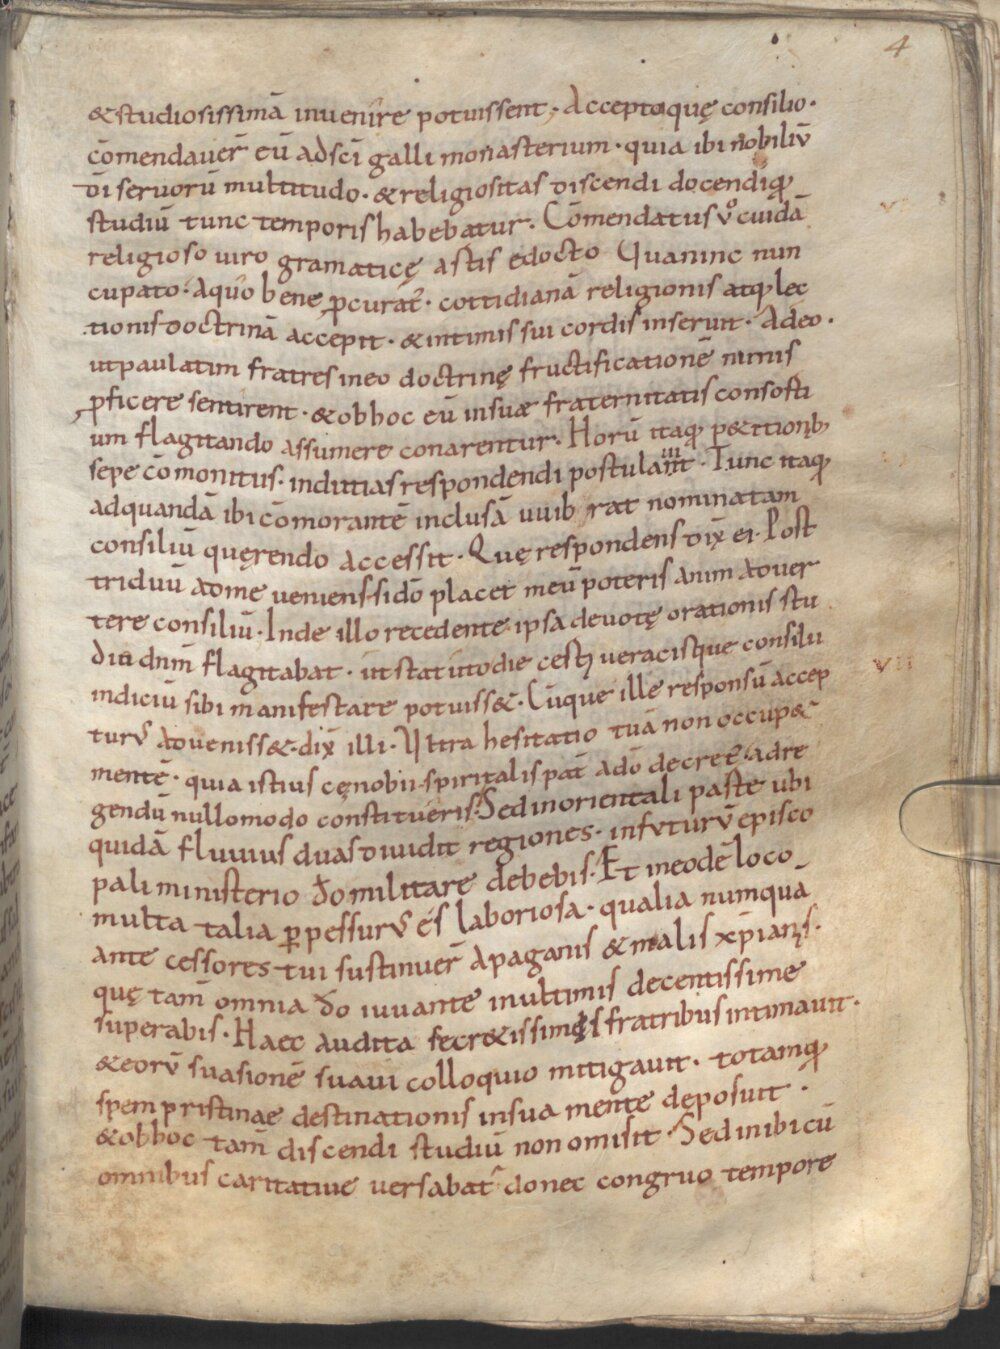 4
&studiosissimā invenire potuissent. Acceptoquę consilio.
cōmendaver̄ eū adsc̄i galli monasterium. quia ibi nobiliū
d̄i servorū multitudo. &religiositas discendi docendiq;
studiū tunc temporis habebatur. Cōmendatus v̊ cuidā
religioso viro gramaticę astis edocto Quaninc nun
cupato. Aquo bene p̄curat᷒. cottidianā religionis atq; lec
tionis doctrinā accepit. &intimis sui cordis inseruit. Adeo.
utpaulatim fratres ineo doctrinę fructificationē nimis
p̄ficere sentirent. &obhoc eū insuæ fraternitatis consorti
um flagitando assumere conarentur. Horū itaq; p&itionib;
sepe cōmonitus. indutias respondendi postulavit. Tunc itaq;
adquandā ibi cōmorantē inclusā vuib rat nominatam
consiliū quęrendo accessit. Quę respondens dix̄ ei. Post
triduū adme veniens. sidō placet meū poteris anim adver
tere consiliū. Inde illo recedente ipsa devotę orationis stu
diū dn̄m flagitabat. ut statutodie cęlesti veracisque consilii
indiciū sibi manifestare potuiss&. Cūque ille responsū accep
turꝰ advenisset. dix̄ illi. Ultra hesitatio tuā non occup&
mentē. quia istius cęnobii spiritalis pat̄ adō decret᷒. adre
gendū nullomodo constitueris. Sed inorientali paste ubi
quidā fluvius duas dividit regiones. infuturū episco
pali ministerio d̄o militare debebis. Et ineodē loco
multa talia ꝑpessurꝰ es laboriosa. qualia numquā
ante cessores tui sustinuer̄ apaganis &malis xp̄ianis.
quę tam̄ omnia d̄o iuvante inultimis decentissime
superabis. Haec audita secr&issimis fratribus intimavit.
&eorū suasionē suavi colloquio mitigavit. totamq;
spem pristinae destinationis insua mente deposuit.
&obhoc tam̄ discendi studiū non omisit. Sed inibi cū
omnibus caritative versabat᷒ donec congruo tempore
VII